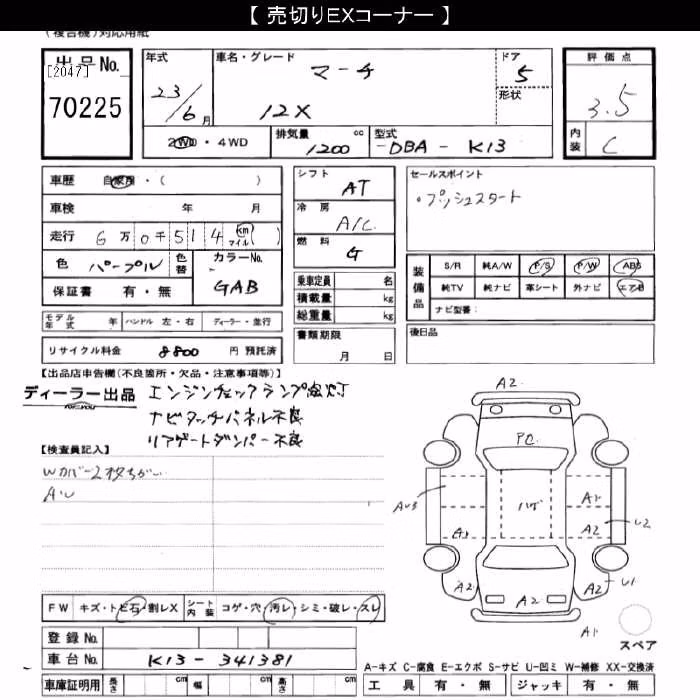 【 売切りEXコーナー 】
(複合機)対応用紙
出品No.
[2047]
70225
年式
23/6月
車名・グレード
マーチ
12X
ドア
5
形状
評価点
3.5
内装
C
2WD・4WD
排気量 1200 cc
型式 -DBA - K13
車歴 自家用・( )
車検 年 月
走行 6万0千514 km マイル ( )
色 パープル 色替
カラーNo.
GAB
保証書 有・無
シフト
AT
冷房
A/C
燃料
G
セールスポイント
・プッシュスタート
装備品
S/R 純A/W P/S P/W ABS
純TV 純ナビ 革シート 外ナビ エアB
ナビ型番:
乗車定員 名
積載量 kg
総重量 kg
モデル年式 年 ハンドル 左・右 ディーラー・並行
リサイクル料金 8800 円 預託済
書類期限
月 日
後日品
【出品店申告欄(不良箇所・欠品・注意事項等)】
ディーラー出品
エンジンチェックランプ点灯
ナビタッチパネル不良
リアゲートダンパー不良
【検査員記入】
Wカバー2枚ちがい
AU
A2
PC
AU3
ハゲ
A1
A2
U2
A1
A2
A2
A2
U1
A1
スペア
FW キズ・トビ石・割レX
シート内装 コゲ・穴・汚レ・シミ・破レ・スレ
登録No.
車台No. K13 - 341381
車庫証明用 長さ cm 幅 cm 高さ cm
A-キズ C-腐食 E-エクボ S-サビ U-凹ミ W-補修 XX-交換済
工具 有・無 ジャッキ 有・無